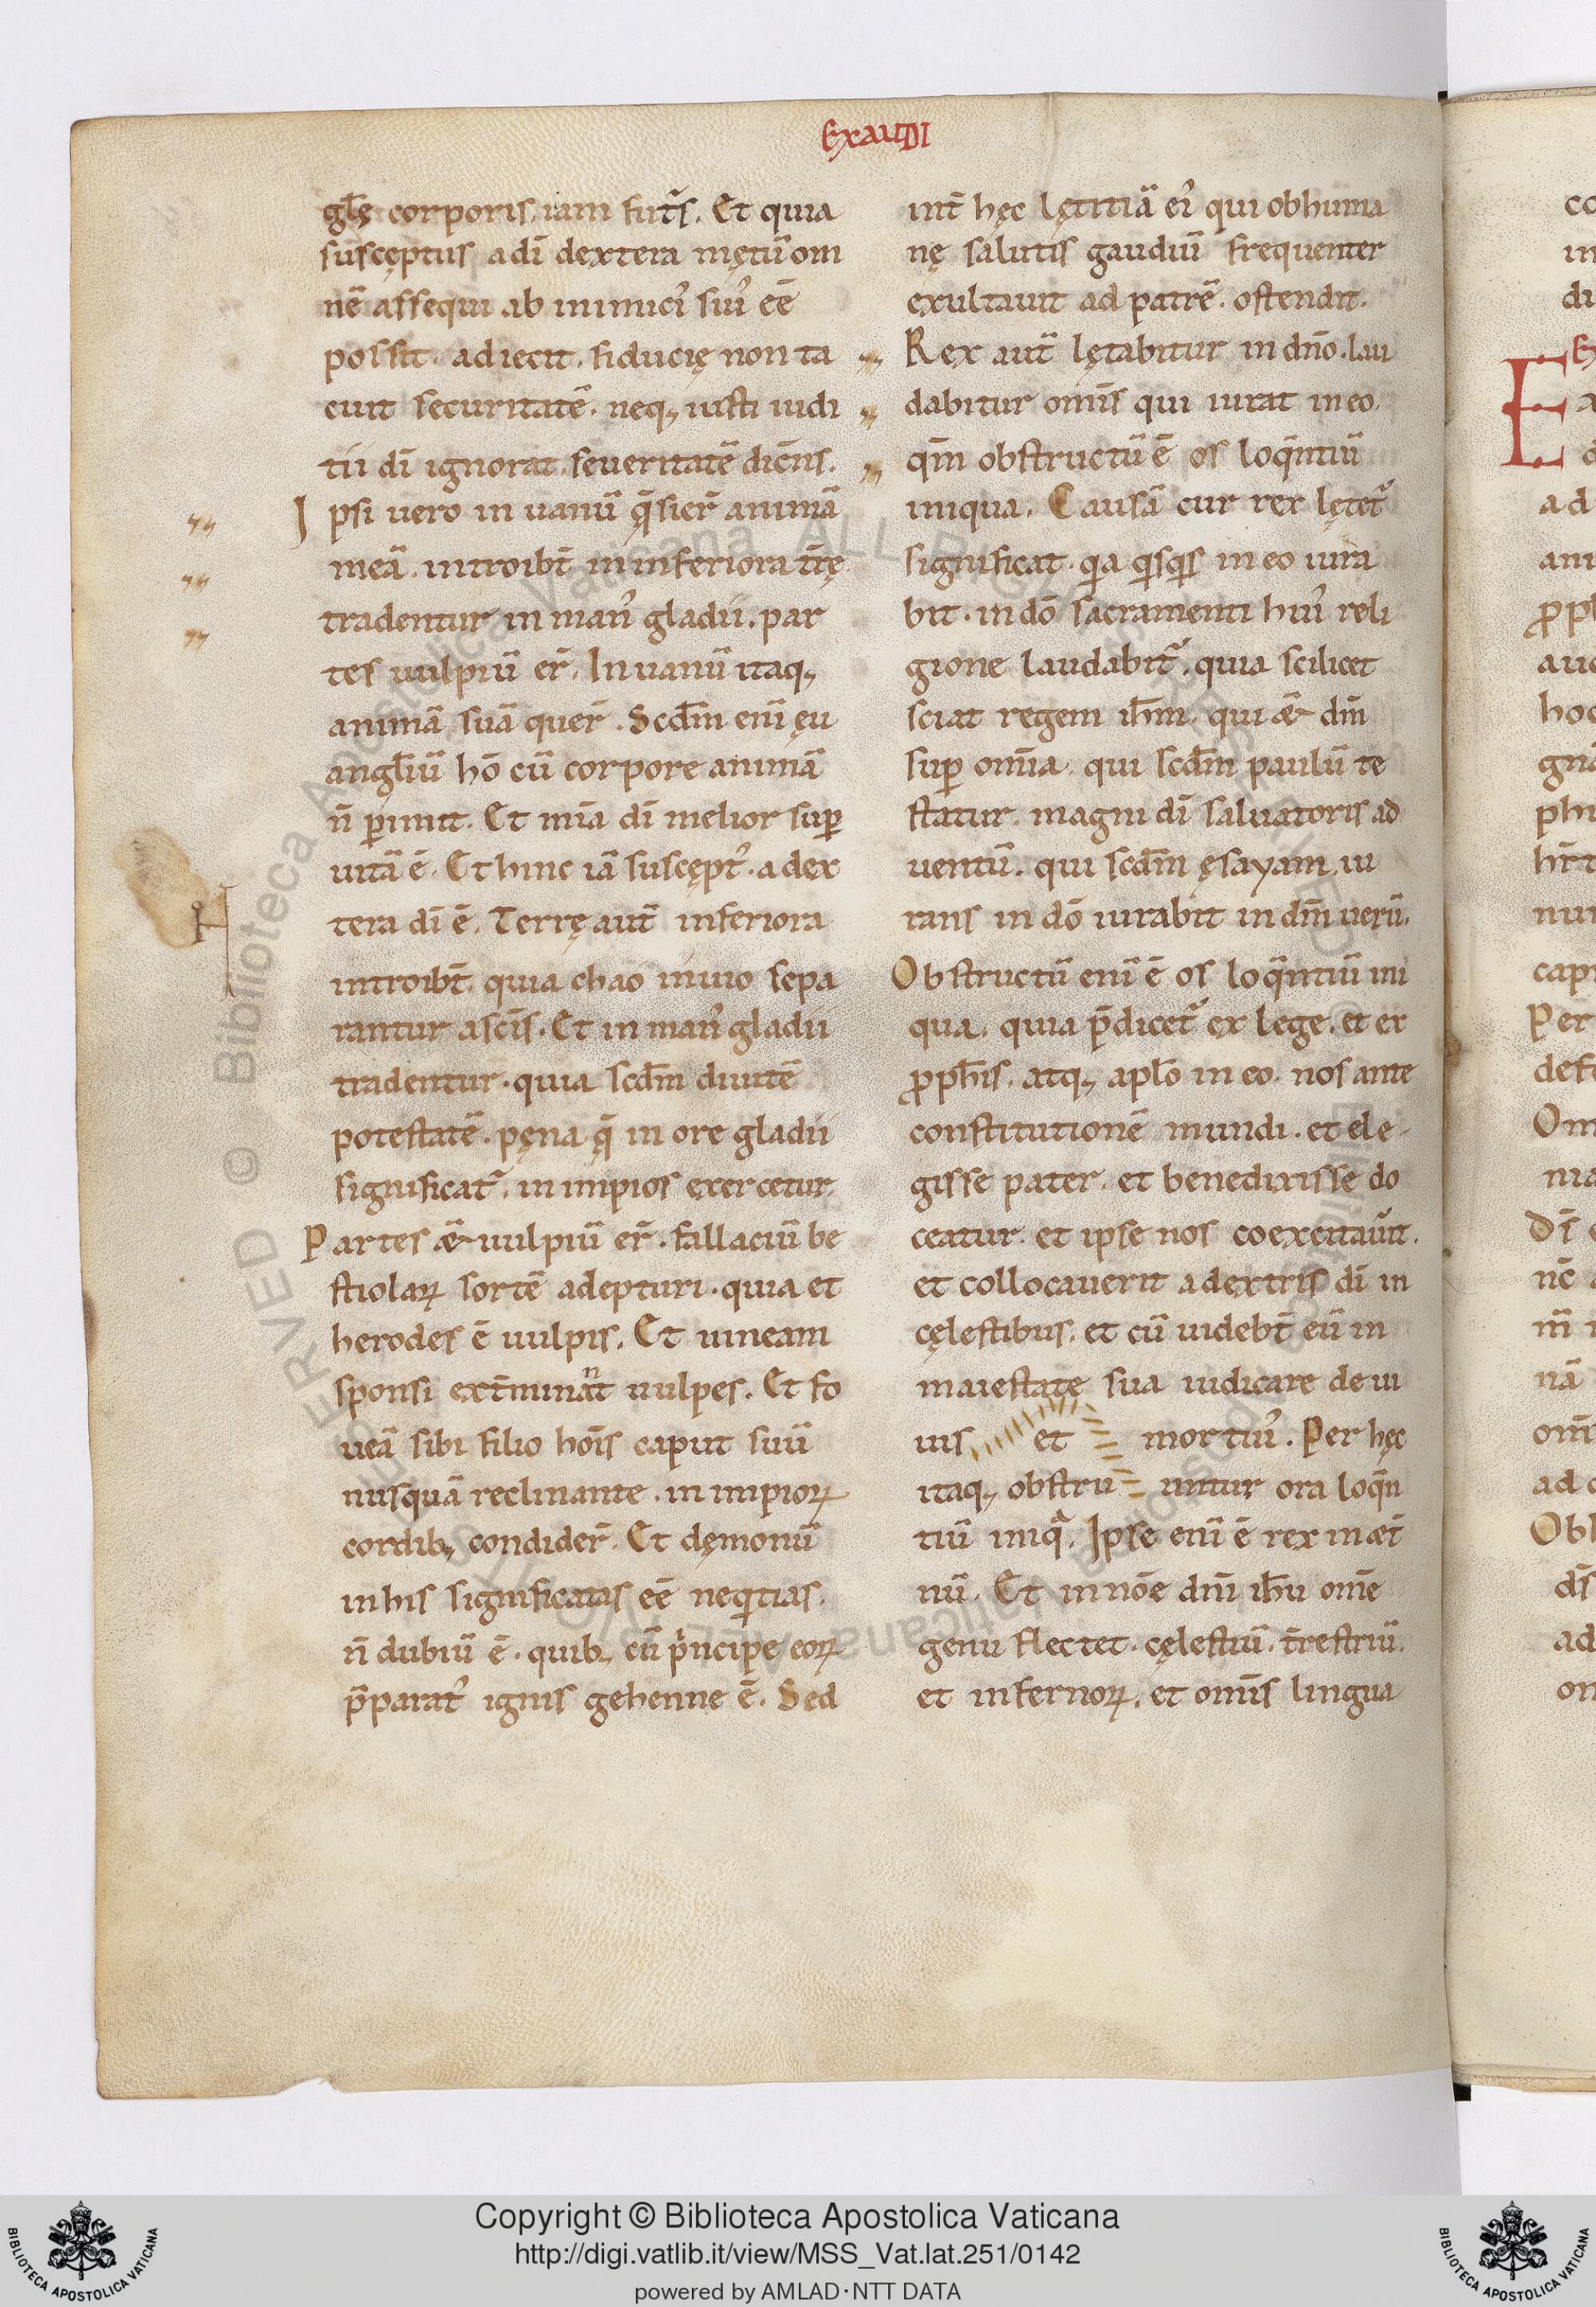 EXAUDI
gl̄ę corporis. iam fut᷑s. Et quia
suscęptus a dī dextera mętū om
nē assequi ab inimic᷒ su᷒ eē
possit. adiecit. fiducię non ta
cuit securitatē. neq; iusti iudi
tii dī ignorat. seueritatē dicēns.
Ipsi uero in uanū q̄sier̄ animā
meā. introibt̄ in inferiora tr̄ę
tradentur in man᷒ gladii. par
tes uulpiū er̄. In uanū itaq;
animā suā quer̄. Scdm̄ enī ęu
angl̄iū hō cū corpore animā
n̄ ꝑimit. Et mīa dī melior suꝑ
uitā ē. Et hinc iā suscępt᷒. a dex
tera dī ē. Terrę aut̄ inferiora
introibt̄. quia chao inuio sepa
rantur a scīs. Et in man᷒ gladii
tradentur. quia scdm̄ diuitē
potestatē. pęna q̄ in ore gladii
significat᷑. in impios exercetur.
Partes ǣ uulpiū er̄. fallaciū be
stiolaꝝ sortē adepturi. quia et
herodes ē uulpis. Et uineam
sponsi ext̄minant uulpes. Et fo
ueā sibi filio hoīs caput suū
nusquā reclinante. in impioꝝ
cordib; condider̄. Et dęmonū
in his significatas eē neqͥtias.
n̄ dubiū ē. quib; cū pͥncipe eoꝝ
p̄parat᷒ ignis gehenne ē. Sed
int̄ hęc lętitiā ei᷒ qui ob huma
nę salutis gaudiū frequenter
exultauit ad patrē. ostendit.
Rex aut̄ lętabitur in dn̄o. lau
dabitur omīs qui iurat in eo.
qm̄ obstructū ē os loq̄ntiū
iniqua. Causā cur rex lętet᷑
significat. qͥa qͥsqͥs in eo iura
bit. in dō sacramenti hui᷒ reli
gione laudabit᷑. quia scilicet
sciat regem ih̄m. qui ǣ dm̄
suꝑ omīa. qui scdm̄ paulū te
statur. magni dī saluatoris ad
uentū. qui scdm̄ ęsayam. iu
rans in dō iurabit in dm̄ uerū.
Obstructū enī ē os loq̄ntiū ini
qua. quia p̄dicet᷑ ex lege. et ex
ꝓph̄is. atq; apl̄o in eo. nos ante
constitutionē mundi. et ele
gisse pater. et benedixisse do
ceatur. et ipse nos coexcitaūit.
et collocauerit a dextris dī in
cęlestibus. et cū uidebt̄ eū in
maiestate sua iudicare de ui
uis et mortui᷒. Per hęc
itaq; obstruuntur ora loq̄n
tiū iniqͣ. Ipse enī ē rex in æt̄
nū. Et in nōe dn̄i ih̄u omē
genu flectet. cęlestiū. tr̄estriū.
et infernoꝝ. et omīs lingua
Copyright © Biblioteca Apostolica Vaticana
http://digi.vatlib.it/view/MSS_Vat.lat.251/0142
powered by AMLAD·NTT DATA
BIBLIOTECA APOSTOLICA VATICANA
BIBLIOTECA APOSTOLICA VATICANA